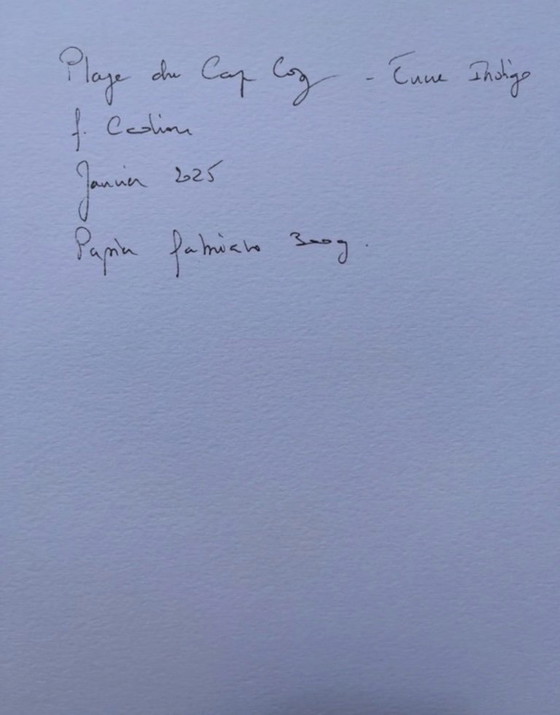 Plage du Cap Coz - Encre Indigo
f. Castina
Janvier 2025
Papier fabriano 300g.